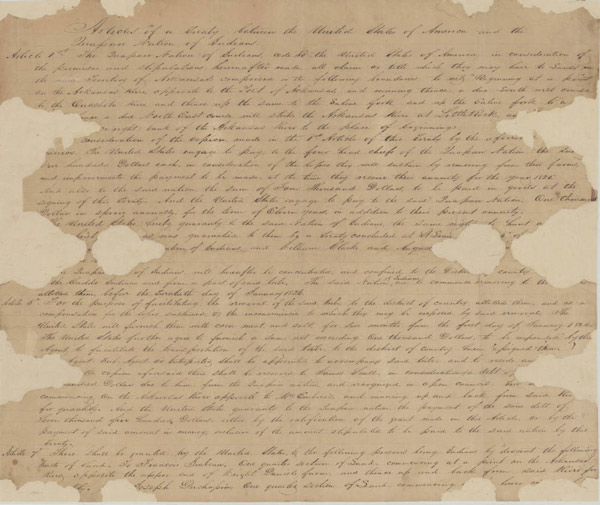 Articles of a Treaty between the United States of America and the
Quapaw Nation of Indians.
Article 1st The Quapaw Nation of Indians cede to the United States of America, in consideration of
the promises and stipulations hereinafter made, all claim or title which they may have to Lands in
the Territory of Arkansas comprised in the following boundaries to wit, Beginning at a point
on the Arkansas River opposite to the Post of Arkansas, and running thence a due South west course
to the Ouachita River and thence up the same to the Saline fork and up the Saline fork to a
a due North East course will strike the Arkansas River at Little Rock,
right bank of the Arkansas River to the place of beginning.
consideration of the cession made in the 1st Article of this Treaty by the
The United States engage to pay to the four head chiefs of the Quapaw Nation the
hundred Dollars each, in consideration of the losses they will sustain by removing from their farms
and improvements the payment to be made at the time they receive their annuity for the year 1825.
And also to the said nation the Sum of Four Thousand Dollars to be paid in goods at the
signing of this Treaty. And the United States engage to pay to the said Quapaw Nation One Thousand
Dollars in specie annually for the term of Eleven years, in addition to their present annuity.
United States hereby guaranty to the said Nation of Indians, the same right to hunt
was guaranteed to them by a Treaty concluded at St
of Indians, and William Clark and August
of Indians will hereafter be concentrated and confined to the District of country
the Caddo Indians and form a part of said tribe. The said Nation of Indians to commence removing to the
allotted them, before the twentieth day of January 1826.
Article 6th For the purpose of facilitating the removal of the said tribe to the district of country allotted them, and as a
compensation for the losses sustained, and the inconveniences to which they may be exposed by said removal, The
United States will furnish them with corn meat and salt for six months from the first day of January 1826.
The United States further agree to furnish a Sum not exceeding two thousand Dollars to be expended by their
Agent to facilitate the transportation of the said tribe to the district of country
Agent Sub Agent or Interpreter shall be appointed to accompany said tribe, and to reside
cession aforesaid there shall be reserved to James Scull, in consideration of a debt of
hundred Dollars due to him from the Quapaw Nation and recognized in open council, two
commencing on the Arkansas River opposite to and running up and back from said River
for quantity. And the United States guaranty to the Quapaw Nation the payment of the said debt of
Seven thousand five hundred Dollars either by the ratification of the grant made in this Article, or by the
payment of said amount in money exclusive of the amount stipulated to be paid to the said nation by this
treaty.
Article 7th There shall be granted by the United States to the following persons being Indians by descent the following
tracts of Land. To Francois Imbeau One quarter section of Land commencing at a point on the Arkansas
River opposite the upper end of Wright Daniel's farm and thence up and back from said River for
Joseph Duchassin One quarter section of Land commencing